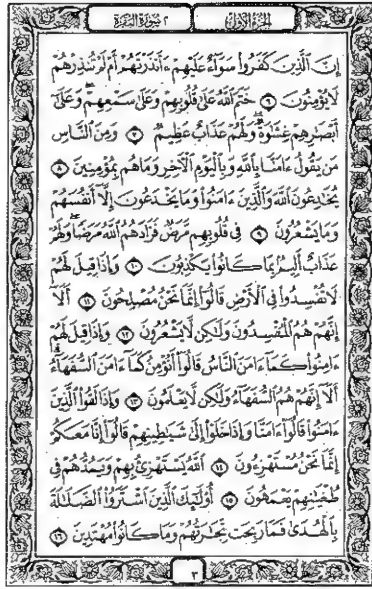 الجزء الأول
٢ سورة البقرة
إِنَّ ٱلَّذِينَ كَفَرُوا۟ سَوَآءٌ عَلَيْهِمْ ءَأَنذَرْتَهُمْ أَمْ لَمْ تُنذِرْهُمْ
لَا يُؤْمِنُونَ ٦ خَتَمَ ٱللَّهُ عَلَىٰ قُلُوبِهِمْ وَعَلَىٰ سَمْعِهِمْ وَعَلَىٰٓ
أَبْصَـٰرِهِمْ غِشَـٰوَةٌ وَلَهُمْ عَذَابٌ عَظِيمٌ ٧ وَمِنَ ٱلنَّاسِ
مَن يَقُولُ ءَامَنَّا بِٱللَّهِ وَبِٱلْيَوْمِ ٱلْـَٔاخِرِ وَمَا هُم بِمُؤْمِنِينَ ٨
يُخَـٰدِعُونَ ٱللَّهَ وَٱلَّذِينَ ءَامَنُوا۟ وَمَا يَخْدَعُونَ إِلَّآ أَنفُسَهُمْ
وَمَا يَشْعُرُونَ ٩ فِى قُلُوبِهِم مَّرَضٌ فَزَادَهُمُ ٱللَّهُ مَرَضًا وَلَهُمْ
عَذَابٌ أَلِيمٌۢ بِمَا كَانُوا۟ يَكْذِبُونَ ١٠ وَإِذَا قِيلَ لَهُمْ
لَا تُفْسِدُوا۟ فِى ٱلْأَرْضِ قَالُوٓا۟ إِنَّمَا نَحْنُ مُصْلِحُونَ ١١ أَلَآ
إِنَّهُمْ هُمُ ٱلْمُفْسِدُونَ وَلَـٰكِن لَّا يَشْعُرُونَ ١٢ وَإِذَا قِيلَ لَهُمْ
ءَامِنُوا۟ كَمَآ ءَامَنَ ٱلنَّاسُ قَالُوٓا۟ أَنُؤْمِنُ كَمَآ ءَامَنَ ٱلسُّفَهَآءُ
أَلَآ إِنَّهُمْ هُمُ ٱلسُّفَهَآءُ وَلَـٰكِن لَّا يَعْلَمُونَ ١٣ وَإِذَا لَقُوا۟ ٱلَّذِينَ
ءَامَنُوا۟ قَالُوٓا۟ ءَامَنَّا وَإِذَا خَلَوْا۟ إِلَىٰ شَيَـٰطِينِهِمْ قَالُوٓا۟ إِنَّا مَعَكُمْ
إِنَّمَا نَحْنُ مُسْتَهْزِءُونَ ١٤ ٱللَّهُ يَسْتَهْزِئُ بِهِمْ وَيَمُدُّهُمْ فِى
طُغْيَـٰنِهِمْ يَعْمَهُونَ ١٥ أُو۟لَـٰٓئِكَ ٱلَّذِينَ ٱشْتَرَوُا۟ ٱلضَّلَـٰلَةَ
بِٱلْهُدَىٰ فَمَا رَبِحَت تِّجَـٰرَتُهُمْ وَمَا كَانُوا۟ مُهْتَدِينَ ١٦
٣